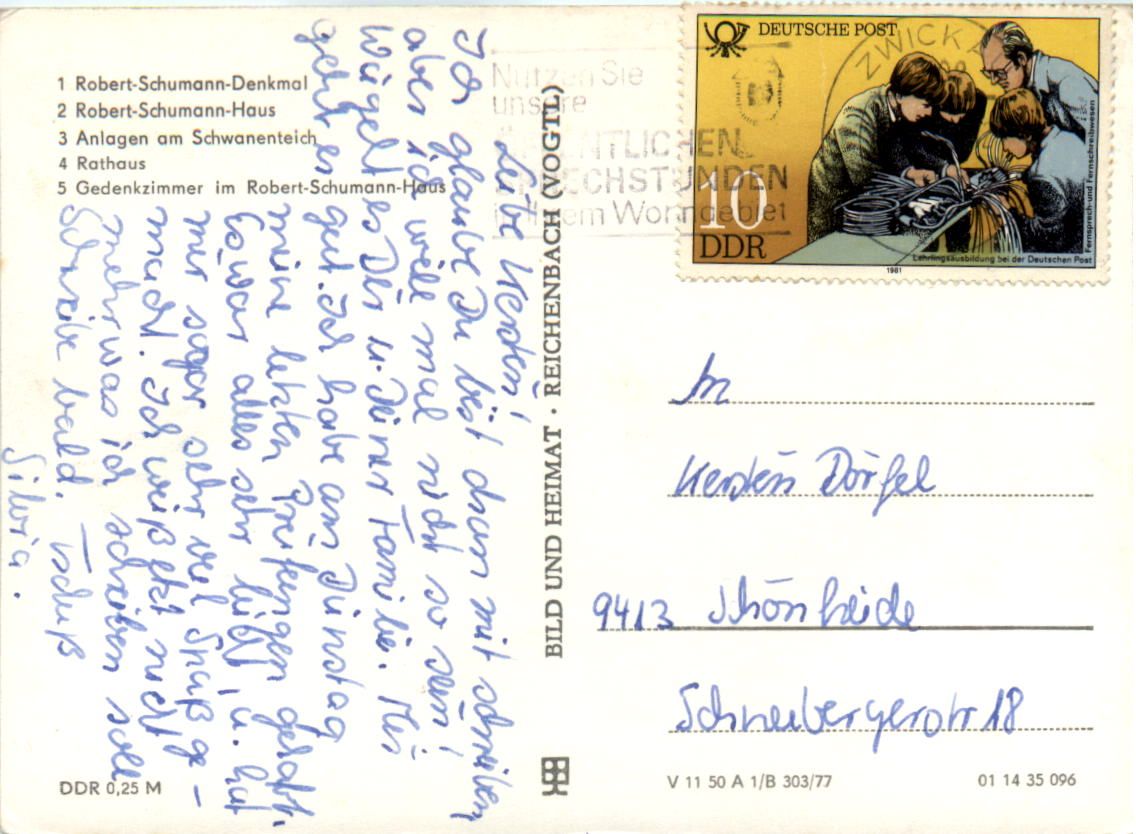 1 Robert-Schumann-Denkmal
2 Robert-Schumann-Haus
3 Anlagen am Schwanenteich
4 Rathaus
5 Gedenkzimmer im Robert-Schumann-Haus
Liebe Kerstin!
Ich glaube Du bist dran mit schreiben
aber ich will mal nicht so sein!
Wie geht es Dir u. Deiner Familie. Mir
geht es gut. Ich habe am Dinstag
meine letzten Prüfungen gehabt.
Es war alles sehr leicht, u. hat
mir sogar sehr viel Spaß ge-
macht. Ich weiß jetzt nicht
mehr was ich schreiben soll
Schreibe bald. Tschüß
Silvia.
DDR 0,25 M
BILD UND HEIMAT · REICHENBACH (VOGTL)
Nutzen Sie
unsere
ÖFFENTLICHEN
SPRECHSTUNDEN
in Ihrem Wohngebiet
ZWICKA
DEUTSCHE POST
10
DDR
Fernsprech- und Fernschreibwesen
Lehrlingsausbildung bei der Deutschen Post
1981
An
Kerstin Dörfel
9413 Schönheide
Schneebergerstr 18
V 11 50 A 1/B 303/77
01 14 35 096